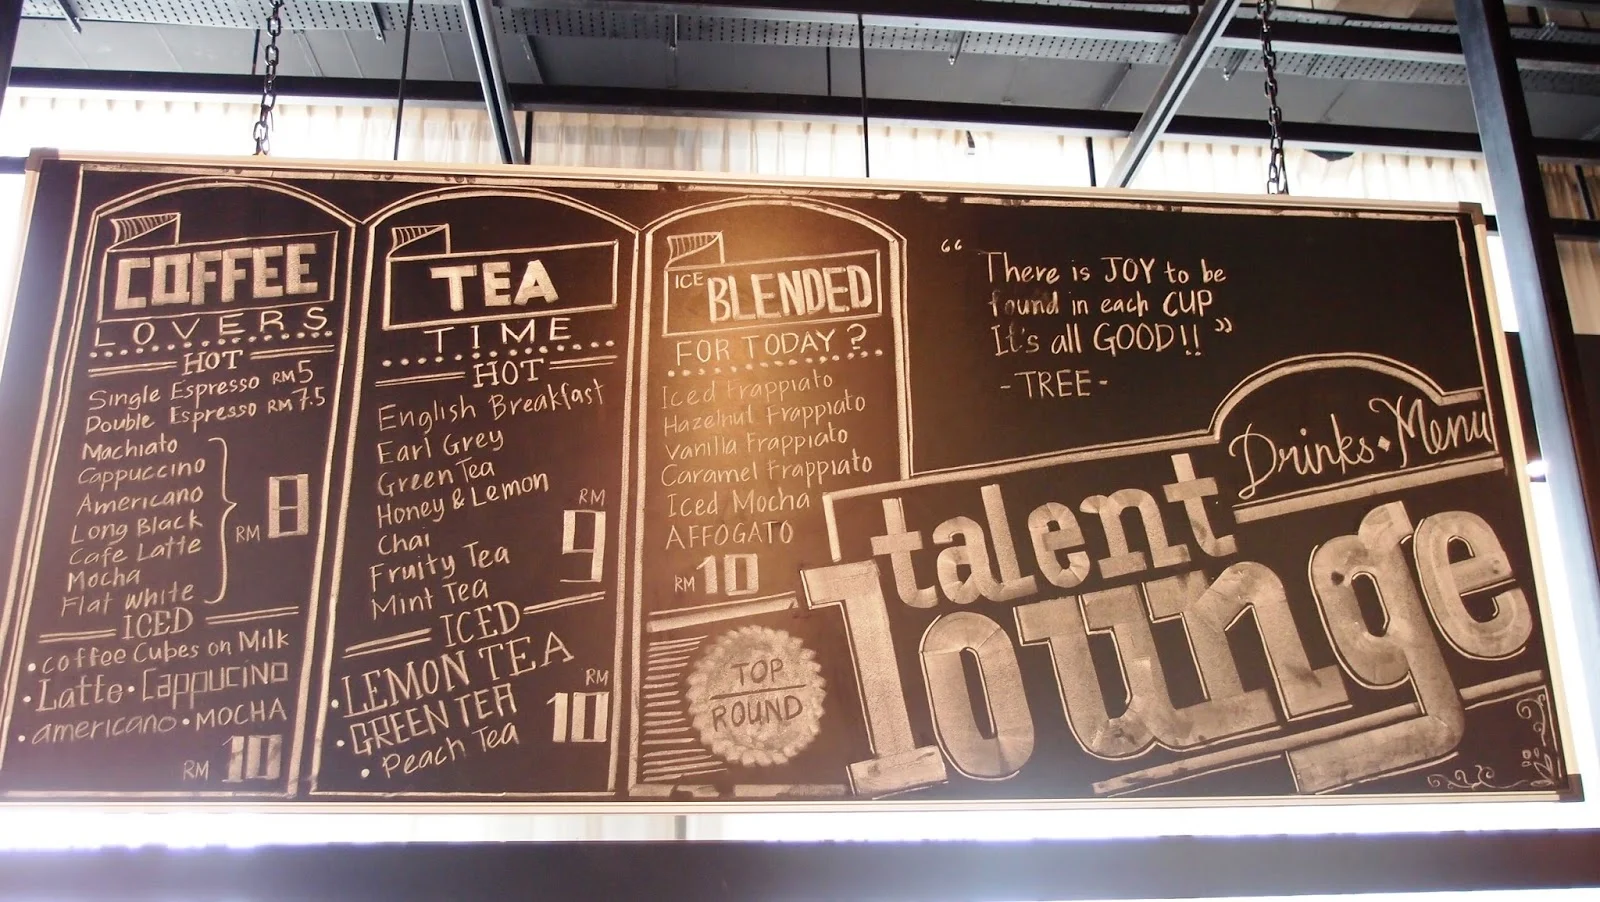 COFFEE
LOVERS
HOT
Single Espresso RM 5
Double Espresso RM 7.5
Machiato
Cappuccino
Americano
Long Black
Cafe Latte
Mocha
Flat White
RM 8
ICED
• coffee Cubes on Milk
• Latte • Cappucino
• americano • MOCHA
RM 10
TEA
TIME
HOT
English Breakfast
Earl Grey
Green Tea
Honey & Lemon
Chai
Fruity Tea
Mint Tea
RM 9
ICED
• LEMON TEA
• GREEN TEA
• Peach Tea
RM 10
ICE BLENDED
FOR TODAY?
Iced Frappiato
Hazelnut Frappiato
Vanilla Frappiato
Caramel Frappiato
Iced Mocha
AFFOGATO
RM 10
TOP
ROUND
“There is JOY to be
found in each CUP
It's all GOOD!!”
- TREE -
Drinks • Menu
talent
lounge